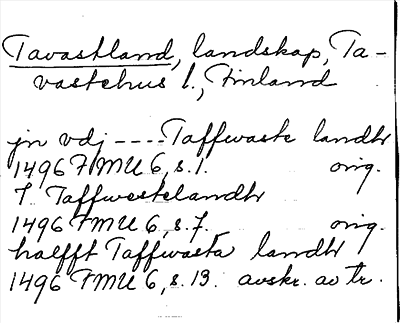 Tavastland, landskap, Ta-
vastehus l., Finland
jn vdj ---- Taffwaste landhr
1496 FMU 6, s. 1. orig.
J Taffwestelandhr
1496 FMU 6, s. 7. orig.
halfft Taffwasta landhr
1496 FMU 6, s. 13. avskr. av tr.